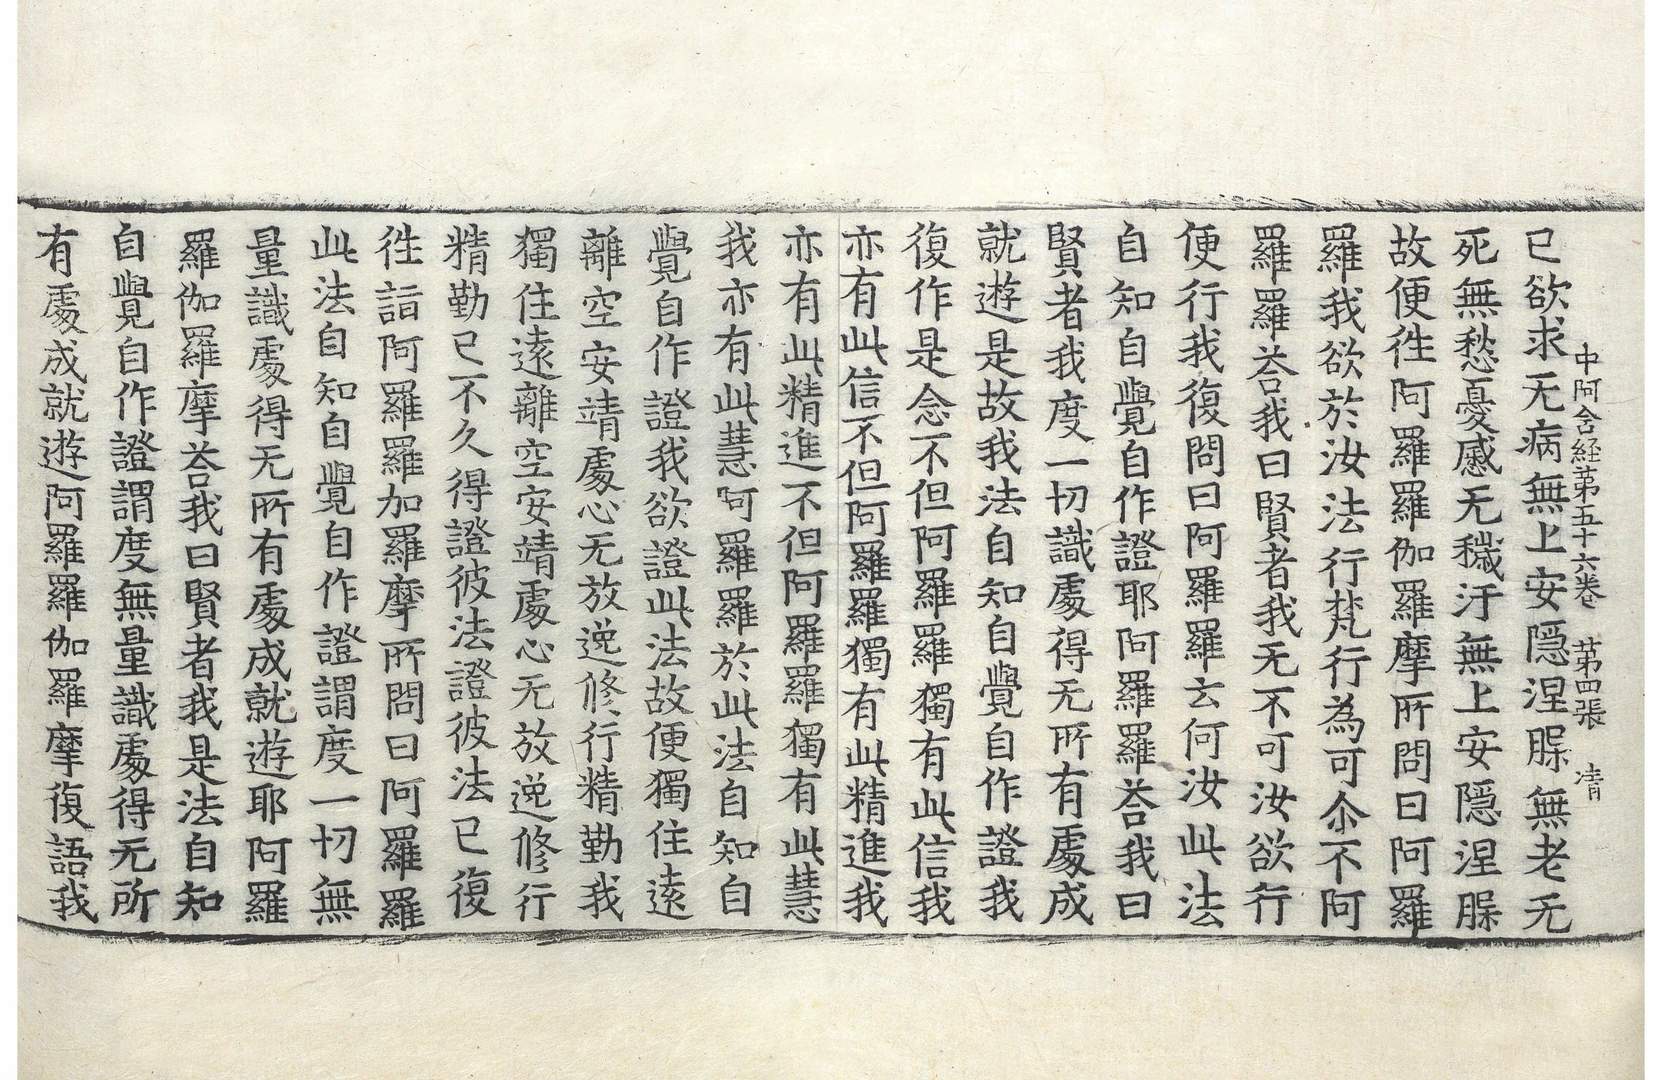 中阿含経苐五十六巻 苐四張 凊
已欲求无病無上安隱涅脲無老无
死無愁憂慼无穢汙無上安隱涅脲
故便徃阿羅羅伽羅摩所問曰阿羅
羅我欲於汝法行梵行為可尒不阿
羅羅荅我曰賢者我无不可汝欲行
便行我復問曰阿羅羅云何汝此法
自知自覺自作證耶阿羅羅荅我曰
賢者我度一切識處得无所有處成
就遊是故我法自知自覺自作證我
復作是念不但阿羅羅獨有此信我
亦有此信不但阿羅羅獨有此精進我
亦有此精進不但阿羅羅獨有此慧
我亦有此慧阿羅羅於此法自知自
覺自作證我欲證此法故便獨住遠
離空安靖處心无放逸修行精勤我
獨住遠離空安靖處心无放逸修行
精勤已不久得證彼法證彼法已復
徃詣阿羅羅加羅摩所問曰阿羅羅
此法自知自覺自作證謂度一切無
量識處得无所有處成就遊耶阿羅
羅伽羅摩荅我曰賢者我是法自知
自覺自作證謂度無量識處得无所
有處成就遊阿羅羅伽羅摩復語我